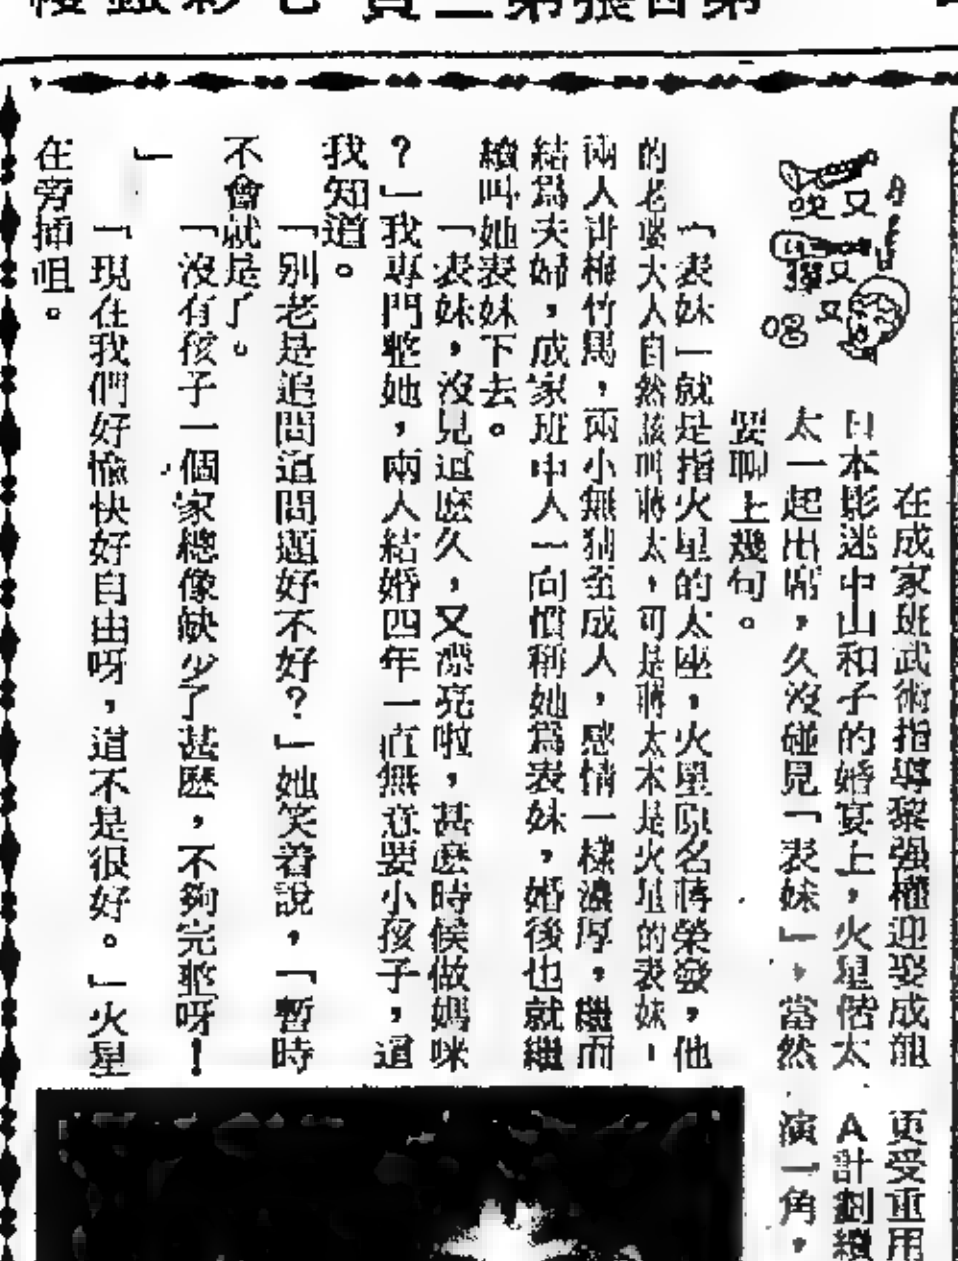 又又又
在成家班武術指導黎强權迎娶成龍
日本影迷中山和子的婚宴上，火星偕太
太一起出席，久沒碰見「表妹」，當然
要聊上幾句。
「表妹」就是指火星的太座，火星原名蔣榮發，他
的老婆大人自然該叫蔣太，可是蔣太本是火星的表妹，
兩人青梅竹馬，兩小無猜至成人，感情一樣濃厚，繼而
結為夫婦，成家班中人一向慣稱她為表妹，婚後也就繼
續叫她表妹下去。
「表妹，沒見這麽久，又漂亮啦，甚麽時候做媽咪
？」我專門整她，兩人結婚四年一直無意要小孩子，這
我知道。
「别老是追問這問題好不好？」她笑着說，「暫時
不會就是了。
「沒有孩子一個家總像缺少了甚麽，不夠完整呀！
」
「現在我們好愉快好自由呀，這不是很好。」火星
在旁插咀。
更受重用
A計劃續
演一角，